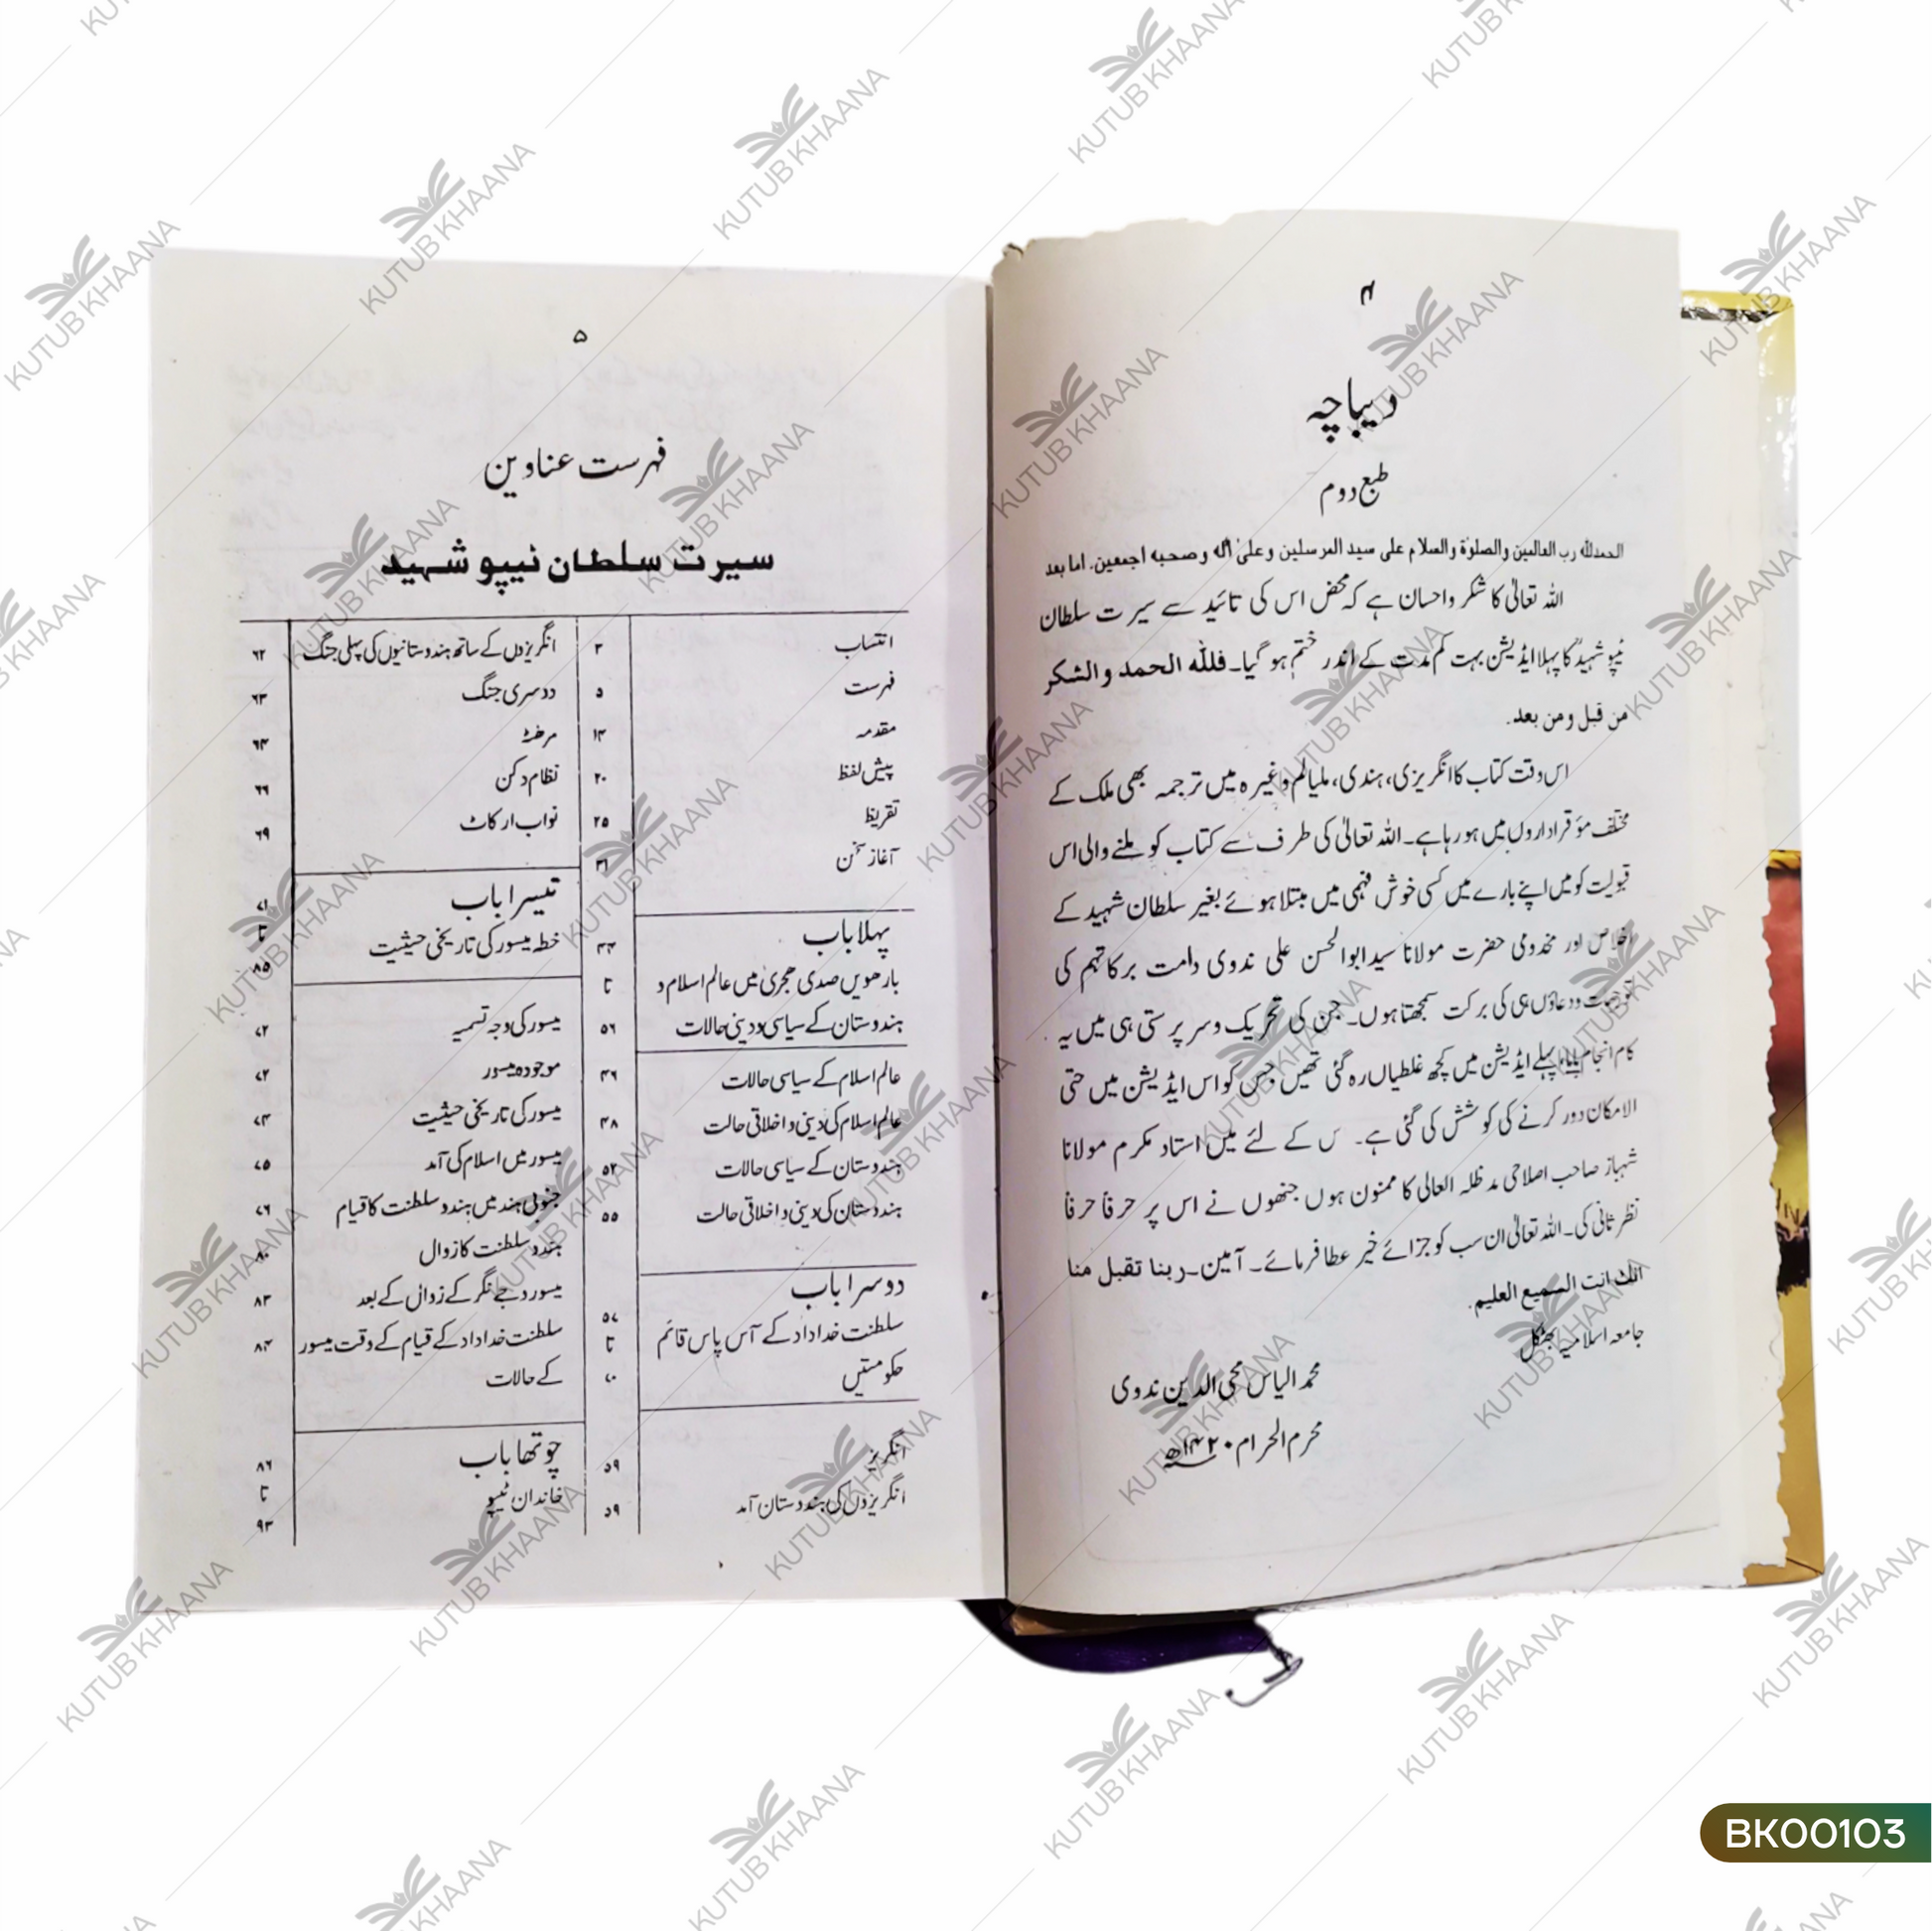 ۴
دیباچہ
طبع دوم
الحمدلله رب العالمین والصلوٰة والسلام علی سید المرسلین وعلیٰ آله وصحبه اجمعین. اما بعد
اللہ تعالیٰ کا شکر واحسان ہے کہ محض اس کی تائید سے سیرت سلطان
ٹیپو شہیدؒ کا پہلا ایڈیشن بہت کم مدت کے اندر ختم ہو گیا۔ فلله الحمد والشکر
من قبل ومن بعد.
اس وقت کتاب کا انگریزی، ہندی، ملیالم وغیرہ میں ترجمہ بھی ملک کے
مختلف مؤقر اداروں میں ہو رہا ہے۔ اللہ تعالیٰ کی طرف سے کتاب کو ملنے والی اس
قبولیت کو میں اپنے بارے میں کسی خوش فہمی میں مبتلا ہوئے بغیر سلطان شہید کے
اخلاص اور مخدومی حضرت مولانا سید ابوالحسن علی ندوی دامت برکاتہم کی
توجہات ودعاؤں ہی کی برکت سمجھتا ہوں۔ جن کی تحریک وسرپرستی ہی میں یہ
کام انجام پایا، پہلے ایڈیشن میں کچھ غلطیاں رہ گئی تھیں جس کو اس ایڈیشن میں حتی
الامکان دور کرنے کی کوشش کی گئی ہے۔ س کے لئے میں استاد مکرم مولانا
شہباز صاحب اصلاحی مدظلہ العالی کا ممنون ہوں جنھوں نے اس پر حرفاً حرفاً
نظر ثانی کی۔ اللہ تعالیٰ ان سب کو جزائے خیر عطا فرمائے۔ آمین۔ ربنا تقبل منا
انك انت السمیع العلیم.
جامعہ اسلامیہ بھٹکل
محمد الیاس محی الدین ندوی
محرم الحرام ۱۴۲۰ھ
۵
فہرست عناوین
سیرت سلطان ٹیپو شہید
انتساب ۳
فہرست ۵
مقدمہ ۱۳
پیش لفظ ۲۰
تقریظ ۲۵
آغاز سخن ۳۱
پہلا باب
بارھویں صدی ہجری میں عالم اسلام و
ہندوستان کے سیاسی و دینی حالات
۴۴
تا
۵۶
عالم اسلام کے سیاسی حالات ۴۶
عالم اسلام کی دینی و اخلاقی حالت ۴۸
ہندوستان کے سیاسی حالات ۵۲
ہندوستان کی دینی و اخلاقی حالت ۵۵
دوسرا باب
سلطنت خداداد کے آس پاس قائم
حکومتیں
۵۷
تا
۷۰
انگریز ۵۹
انگریزوں کی ہندوستان آمد ۵۹
انگریزوں کے ساتھ ہندوستانیوں کی پہلی جنگ ۶۲
دوسری جنگ ۶۳
مرہٹہ ۶۴
نظام دکن ۶۶
نواب ارکاٹ ۶۹
تیسرا باب
خطہ میسور کی تاریخی حیثیت
۷۱
تا
۸۵
میسور کی وجہ تسمیہ ۷۲
موجودہ میسور ۷۲
میسور کی تاریخی حیثیت ۷۴
میسور میں اسلام کی آمد ۷۵
جنوبی ہند میں ہندو سلطنت کا قیام ۷۶
ہندو سلطنت کا زوال ۸۰
میسور وجے نگر کے زوال کے بعد ۸۳
سلطنت خداداد کے قیام کے وقت میسور ۸۴
کے حالات
چوتھا باب
خاندان ٹیپو
۸۶
تا
۹۳
KUTUB KHAANA
BK00103